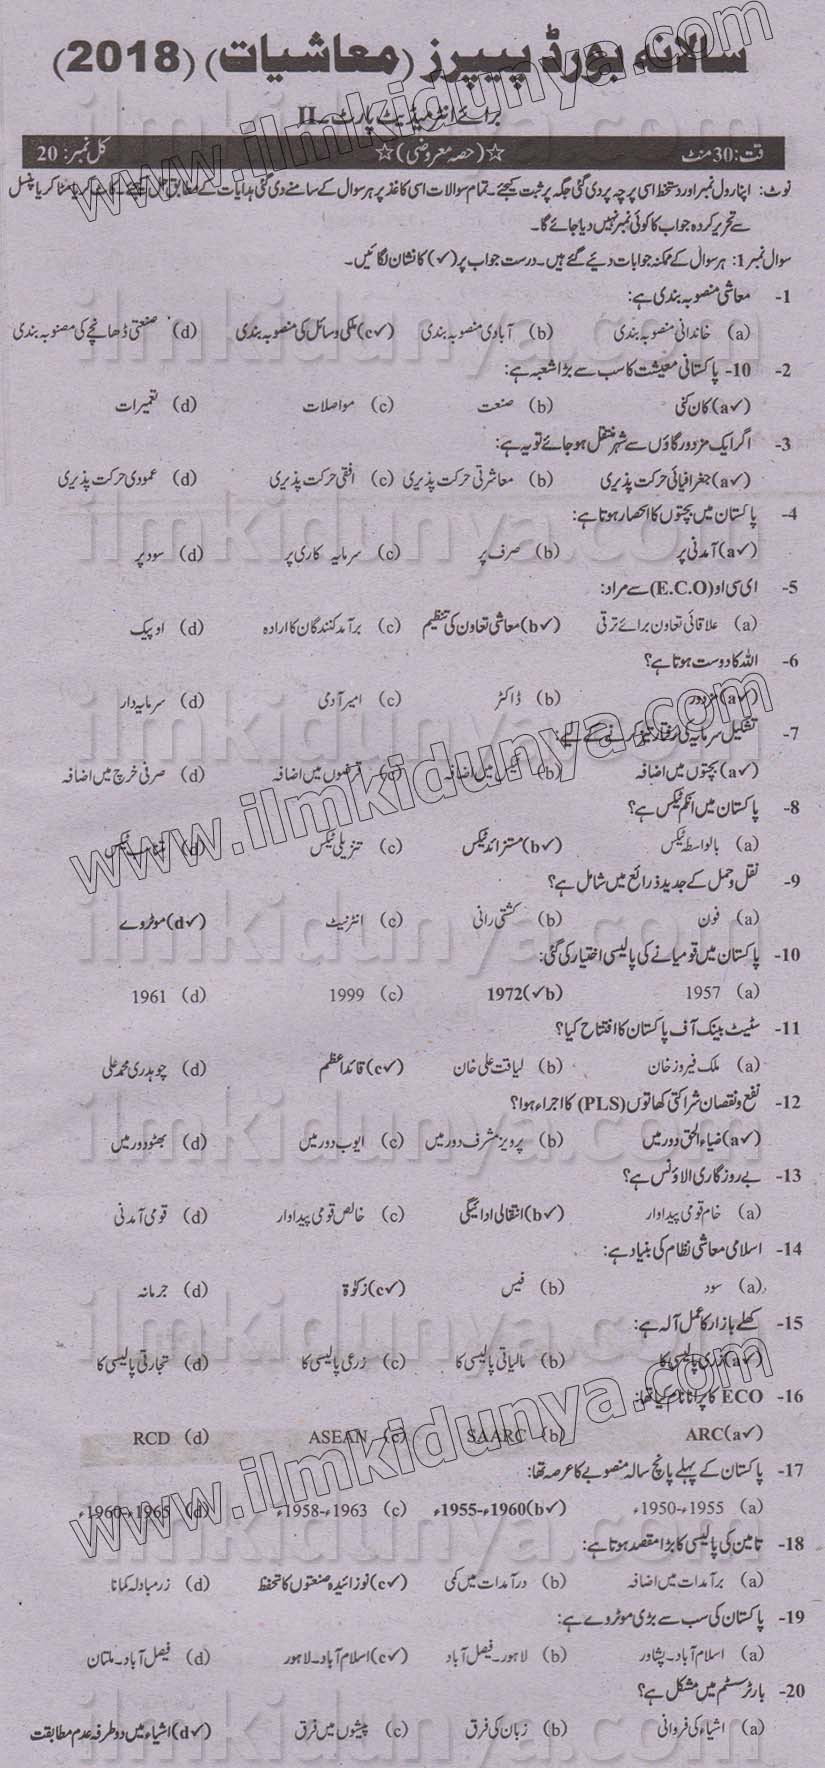 سالانہ بورڈ پیپرز (معاشیات) (2018)
برائے انٹرمیڈیٹ پارٹ۔II
وقت: 30 منٹ ☆(حصہ معروضی)☆ کل نمبر: 20
نوٹ: اپنا رول نمبر اور دستخط اسی پرچہ پر دی گئی جگہ پر ثبت کیجئے۔ تمام سوالات اسی کاغذ پر ہر سوال کے سامنے دی گئی ہدایات کے مطابق حل کیجئے۔ کاٹ کر یا مٹا کر یا پنسل
سے تحریر کردہ جواب کا کوئی نمبر نہیں دیا جائے گا۔
سوال نمبر 1: ہر سوال کے ممکنہ جوابات دیئے گئے ہیں۔ درست جواب پر (✓) کا نشان لگائیں۔
1- معاشی منصوبہ بندی ہے:
(a) خاندانی منصوبہ بندی (b) آبادی منصوبہ بندی (c✓) ملکی وسائل کی منصوبہ بندی (d) صنعتی ڈھانچے کی منصوبہ بندی
2- 10- پاکستانی معیشت کا سب سے بڑا شعبہ ہے:
(a✓) کان کنی (b) صنعت (c) مواصلات (d) تعمیرات
3- اگر ایک مزدور گاؤں سے شہر منتقل ہو جائے تو یہ ہے:
(a✓) جغرافیائی حرکت پذیری (b) معاشرتی حرکت پذیری (c) افقی حرکت پذیری (d) عمودی حرکت پذیری
4- پاکستان میں بچتوں کا انحصار ہوتا ہے:
(a✓) آمدنی پر (b) صرف پر (c) سرمایہ کاری پر (d) سود پر
5- ای سی او (E.C.O) سے مراد:
(a) علاقائی تعاون برائے ترقی (b✓) معاشی تعاون کی تنظیم (c) برآمد کنندگان کا ارادہ (d) اوپیک
6- اللہ کا دوست ہوتا ہے؟
(a✓) مزدور (b) ڈاکٹر (c) امیر آدمی (d) سرمایہ دار
7- تشکیل سرمایہ کی رفتار تیز کرنے کے لیے:
(a✓) بچتوں میں اضافہ (b) ٹیکس میں اضافہ (c) قرضوں میں اضافہ (d) صرفی خرچ میں اضافہ
8- پاکستان میں انکم ٹیکس ہے؟
(a) بالواسطہ ٹیکس (b✓) مستزائد ٹیکس (c) تنزیلی ٹیکس (d) متناسب ٹیکس
9- نقل و حمل کے جدید ذرائع میں شامل ہے؟
(a) فون (b) کشتی رانی (c) انٹرنیٹ (d✓) موٹروے
10- پاکستان میں قومیانے کی پالیسی اختیار کی گئی:
(a) 1957 (b✓) 1972 (c) 1999 (d) 1961
11- سٹیٹ بینک آف پاکستان کا افتتاح کیا؟
(a) ملک فیروز خان (b) لیاقت علی خان (c✓) قائد اعظم (d) چوہدری محمد علی
12- نفع و نقصان شراکتی کھاتوں (PLS) کا اجراء ہوا؟
(a✓) ضیاء الحق دور میں (b) پرویز مشرف دور میں (c) ایوب دور میں (d) بھٹو دور میں
13- بے روزگاری الاؤنس ہے؟
(a) خام قومی پیداوار (b✓) انتقالی ادائیگی (c) خالص قومی پیداوار (d) قومی آمدنی
14- اسلامی معاشی نظام کی بنیاد ہے:
(a) سود (b) فیس (c✓) زکوٰۃ (d) جرمانہ
15- کھلے بازار کا عمل آلہ ہے:
(a✓) زری پالیسی کا (b) مالیاتی پالیسی کا (c) زرعی پالیسی کا (d) تجارتی پالیسی کا
16- ECO کا پرانا نام کیا تھا:
(a✓) ARC (b) SAARC (c) ASEAN (d) RCD
17- پاکستان کے پہلے پانچ سالہ منصوبے کا عرصہ تھا:
(a) 1950ء-1955ء (b✓) 1955ء-1960ء (c) 1958ء-1963ء (d) 1960ء-1965ء
18- تامین کی پالیسی کا بڑا مقصد ہوتا ہے:
(a) برآمدات میں اضافہ (b) درآمدات میں کمی (c✓) نوزائیدہ صنعتوں کا تحفظ (d) زرمبادلہ کمانا
19- پاکستان کی سب سے بڑی موٹروے ہے:
(a) اسلام آباد۔پشاور (b) لاہور۔فیصل آباد (c✓) اسلام آباد۔لاہور (d) فیصل آباد۔ملتان
20- بارٹر سسٹم میں مشکل ہے؟
(a) اشیاء کی فروانی (b) زبان کی فرق (c) پیشوں میں فرق (d✓) اشیاء میں دو طرفہ عدم مطابقت
www.ilmkidunya.com